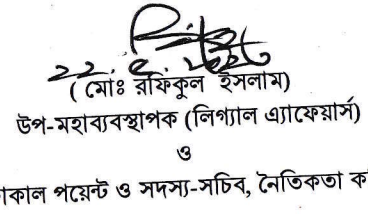 (মোঃ রফিকুল ইসলাম)
উপ-মহাব্যবস্থাপক (লিগ্যাল এ্যাফেয়ার্স)
ও
পয়েন্ট ও সদস্য-সচিব, নৈতিকতা